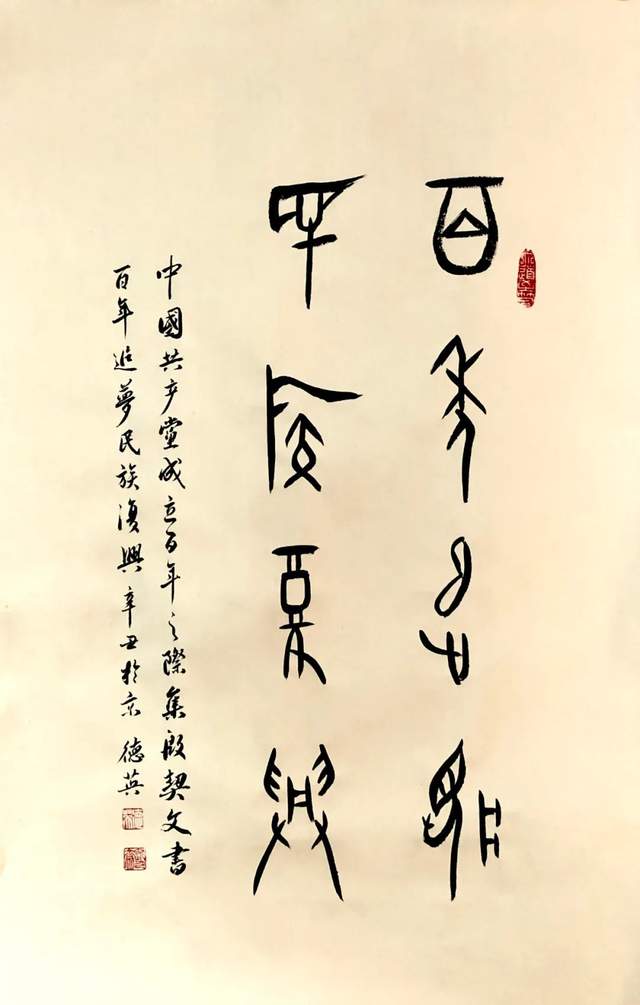 百年追夢
民族復興
中國共产党成立百年之際集殷契文書
百年追夢民族復興 辛丑於京 德英